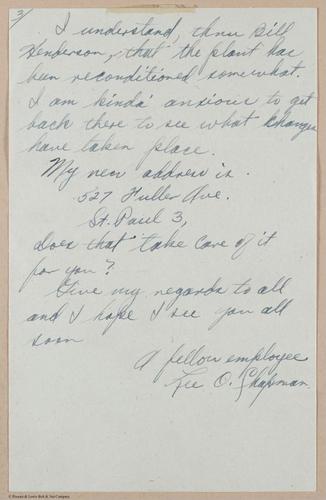 3/
I understand, thru Bill
Henderson, that the plant has
been reconditioned somewhat.
I am kinda anxious to get
back there to see what changes
have taken place.
My new address is.
527 Fuller Ave.
St. Paul 3,
does that take care of it
for you?
Give my regards to all
and I hope I see you all
soon
A fellow employee
Lee O. Chapman.
© Brown & Bigelow